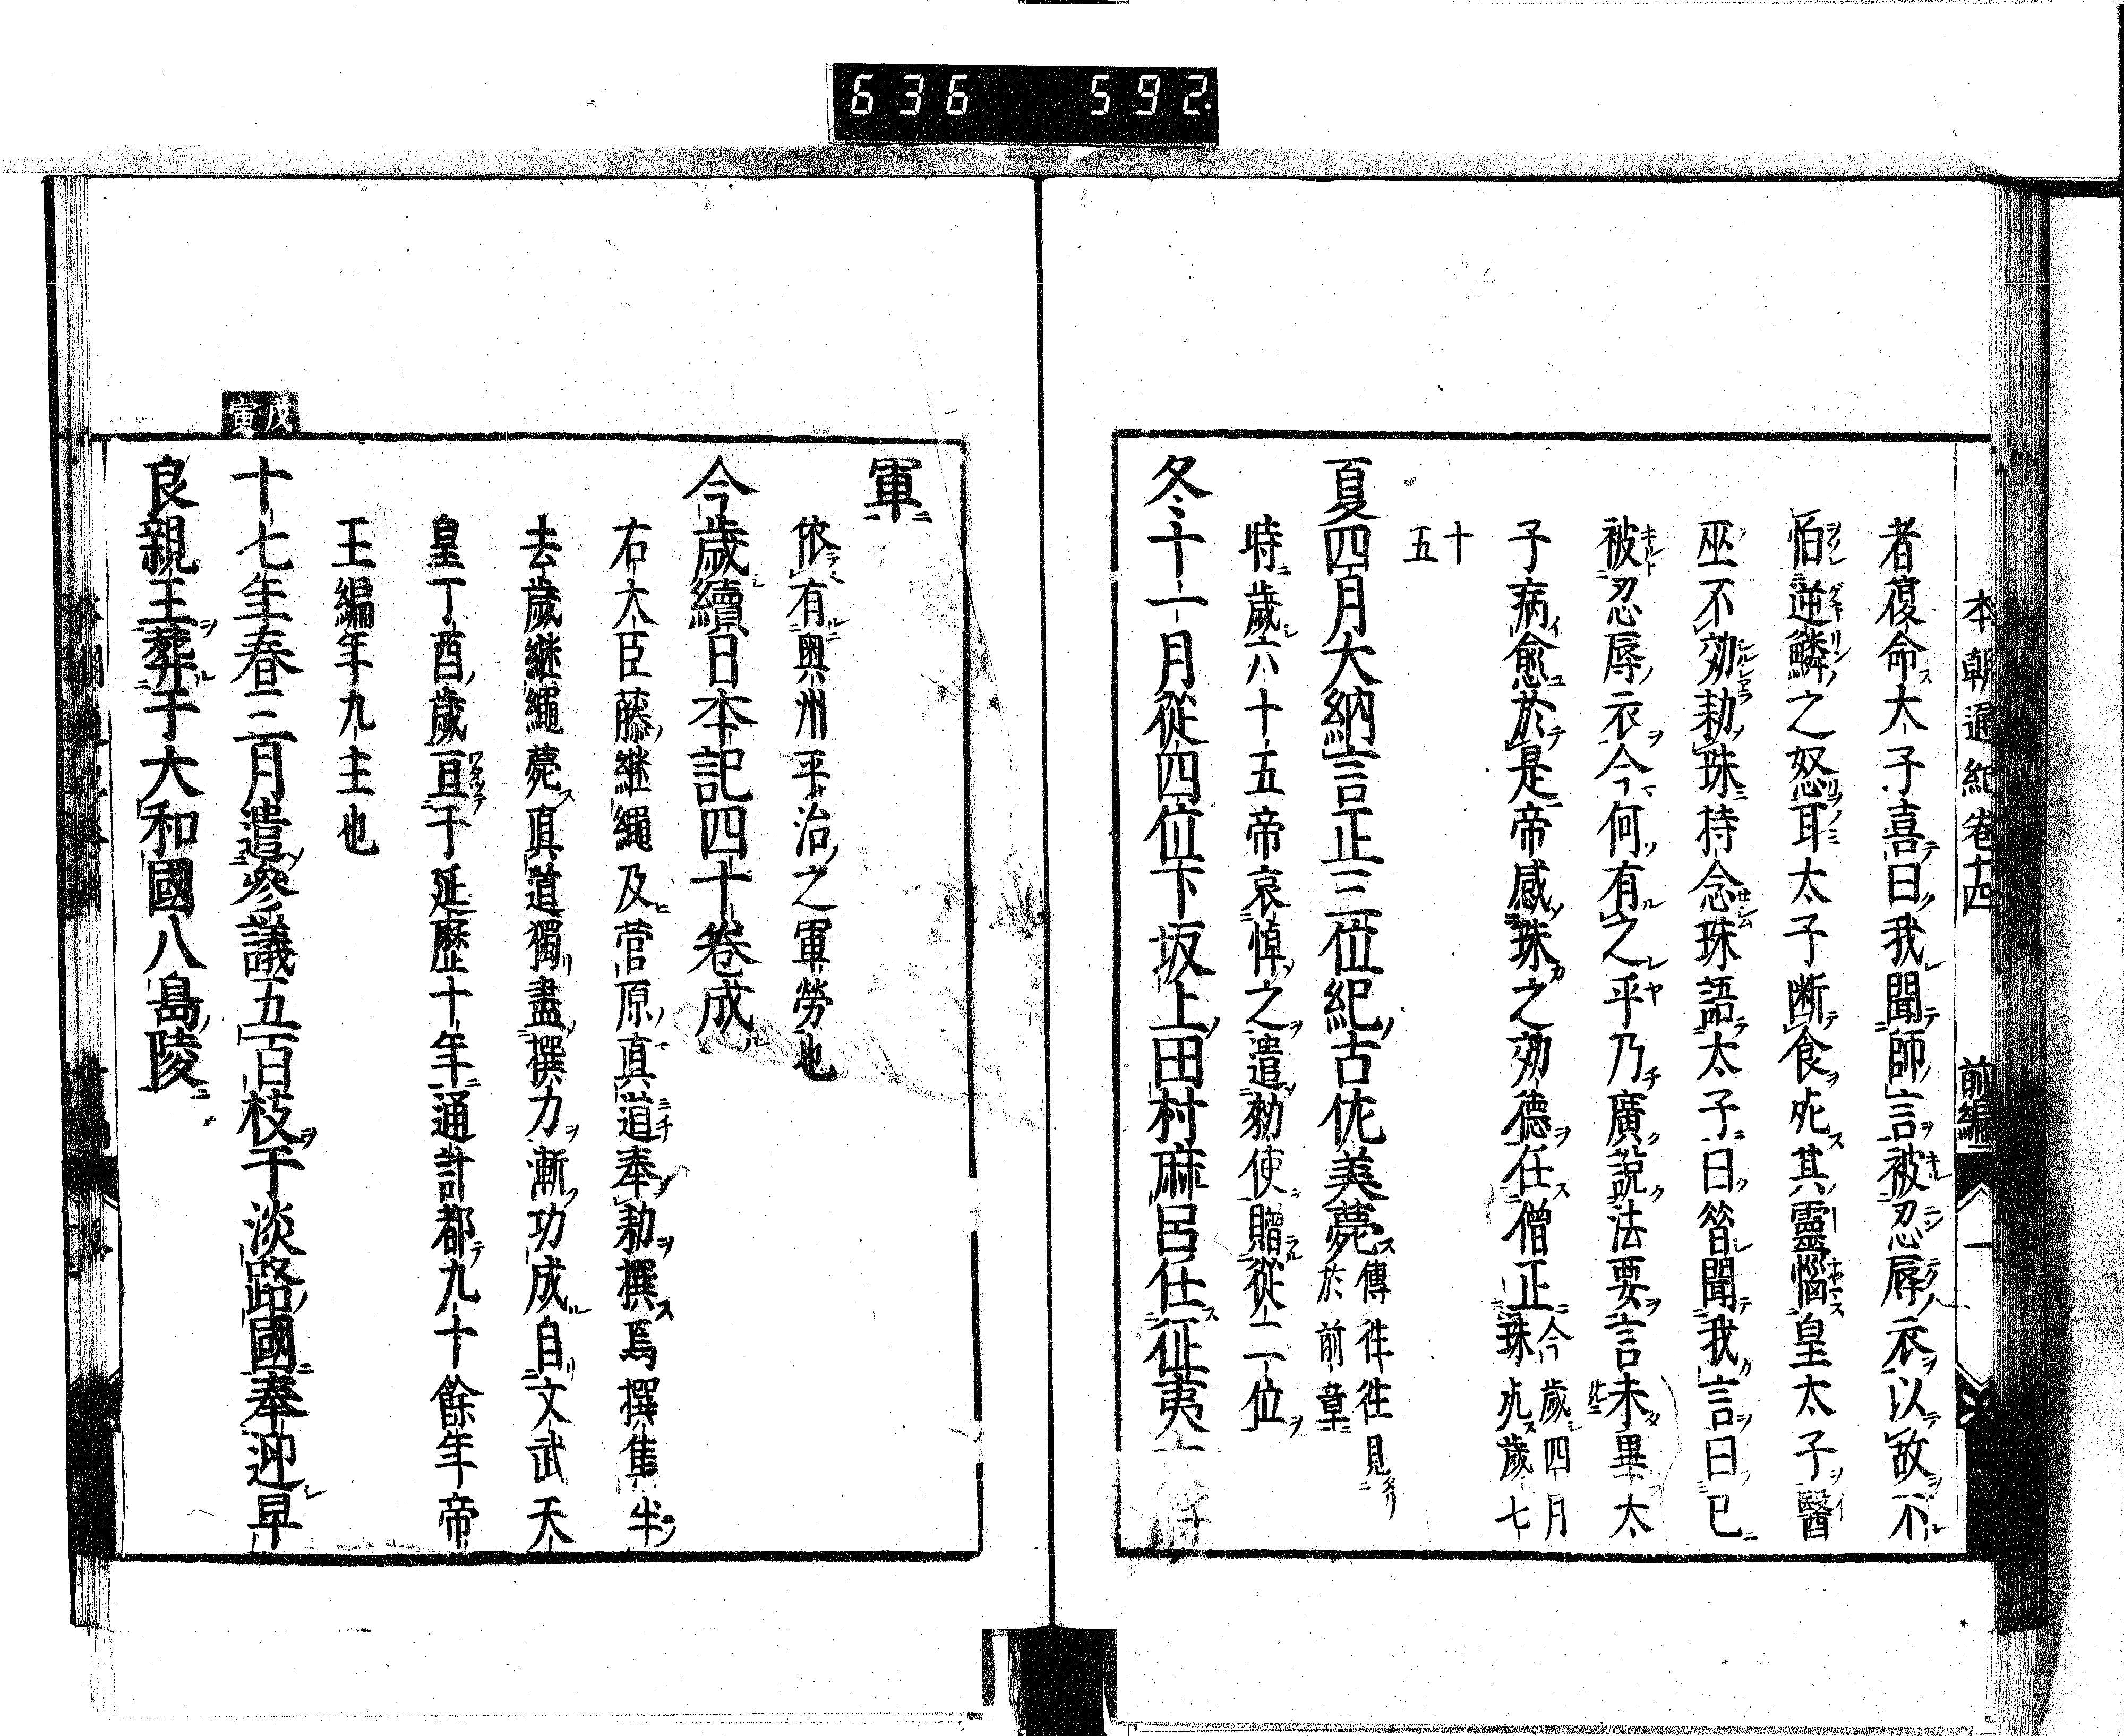 636 592
本朝通紀卷十四 前編 一
者復命太子喜曰我聞師言被忍辱衣以故不
怕逆鱗之怒耳太子断食死其靈惱皇太子醫
巫不効勅珠持念珠語太子曰昔聞我言曰已
被忍辱衣今何有之乎乃廣說法要言未畢太
子病愈於是帝感珠之効德任僧正今歲四月
珠死歲七
十
五
夏四月大納言正三位紀古佐美薨傳往往見
於前章
時歲六十五帝哀悼之遣勅使贈從二位
冬十一月從四位下坂上田村麻呂任征夷
軍
依有奥州平治之軍勞也
今歲續日本記四十卷成
右大臣藤継繩及菅原真道奉勅撰焉撰集半
去歲継繩薨真道獨盡撰力漸功成自文武天
皇丁酉歲亘于延歷十年通計都九十餘年帝
王編年九主也
戊寅
十七年春三月遣參議五百枝于淡路國奉迎早
良親王葬于大和國八島陵